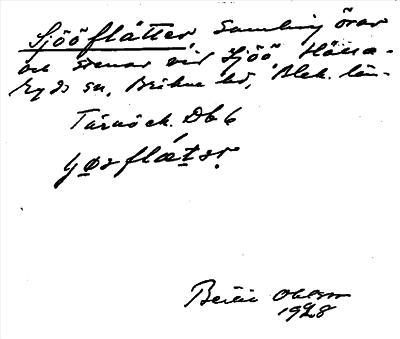 Sjööflätter, Samling örar
och stenar vid Sjöö, Hälla-
ryds sn, Bräkne hd, Blek. län.
Tärnö ek. Db 6
Bertil Ohlson
1928